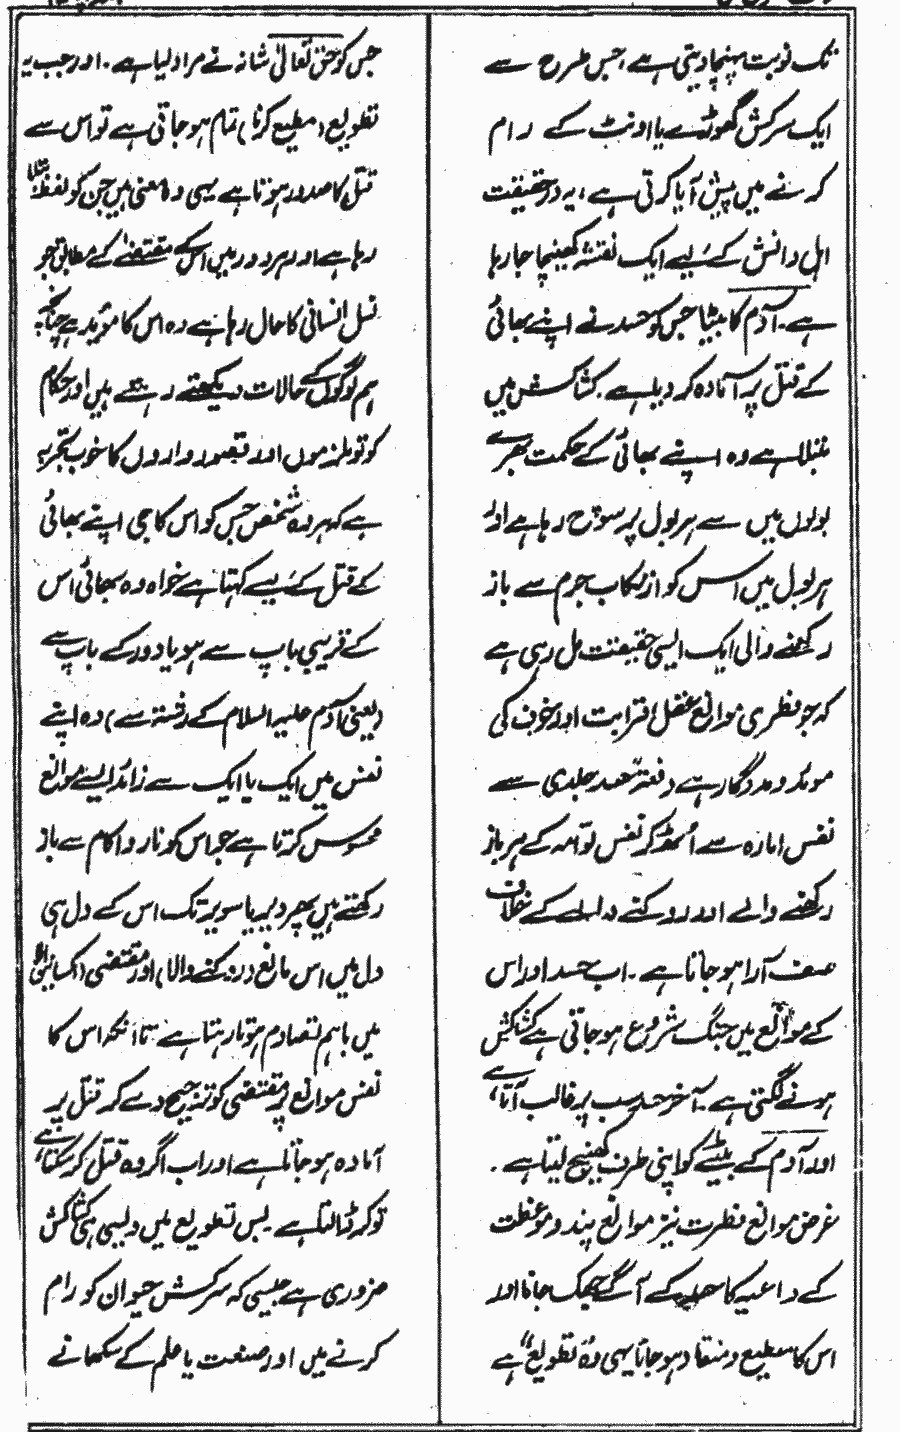 تک نوبت پہنچا دیتی ہے، جس طرح سے
ایک سرکش گھوڑے یا اونٹ کے رام
کرنے میں پیش آیا کرتی ہے، یہ درحقیقت
اہل دانش کے لیے ایک نقشہ کھینچا جا رہا
ہے۔ آدم کا بیٹا جس کو حسد نے اپنے بھائی
کے قتل پر آمادہ کر دیا ہے۔ کشاکش میں
مبتلا ہے وہ اپنے بھائی کے حکمت بھرے
بولوں میں سے ہر بول پر سوچ رہا ہے اور
ہر بول میں اس کو ازتکاب جرم سے باز
رکھنے والی ایک ایسی حقیقت مل رہی ہے
کہ جو نظری موانع عقل قرابت اور خوف کی
موئد و مددگار ہے دفعۃً حسد جلدی سے
نفس امارہ سے اُمڈ کر نفس لوامہ کے ہر باز
رکھنے والے اور روکنے والے کے خلاف
صف آرا ہو جاتا ہے۔ اب حسد اور اس
کے موانع میں جنگ شروع ہو جاتی ہے کشاکش
ہونے لگتی ہے۔ آخر حسد سب پر غالب آتا ہے،
اور آدم کے بیٹے کو اپنی طرف کھینچ لیتا ہے۔
غرض موانع فطرت نیز موانع پند و موعظت
کے داعیہ کا حسد کے آگے جھک جانا اور
اس کا مطیع و منقاد ہو جانا یہی وہ "تطویع" ہے
جس کو حق تعالیٰ شانہ نے مراد لیا ہے۔ اور جب یہ
تطویع (مطیع کرنا) تمام ہو جاتی ہے تو اس سے
قتل کا صدور ہوتا ہے یہی وہ معنی ہیں جن کو لفظ مثلاً
رہا ہے اور ہر دور میں اس کے مقتضےٰ کے مطابق جو
نسل انسانی کا حال رہا ہے وہ اس کا مؤید ہے چنانچہ
ہم لوگوں کے حالات دیکھتے رہتے ہیں اور حکام
کو تو ملزموں اور قصور واروں کا خوب تجربہ
ہے کہ ہر وہ شخص جس کو اس کا جی اپنے بھائی
کے قتل کے لیے کہتا ہے خواہ وہ بھائی اس
کے قریبی باپ سے ہو یا دور کے باپ سے
(یعنی آدم علیہ السلام کے رشتہ سے) وہ اپنے
نفس میں ایک یا ایک سے زائد ایسے موانع
محسوس کرتا ہے جو اس کو ناروا کام سے باز
رکھتے ہیں پھر دیر یا سویر تک اس کے دل ہی
دل میں اس مانع (روکنے والا) اور مقتضی (اکسانے والا)
میں باہم تصادم ہوتا رہتا ہے تا آنکہ اس کا
نفس موانع پر مقتضی کو ترجیح دے کر قتل پر
آمادہ ہو جاتا ہے اور اب اگر وہ قتل کر سکتا ہے،
تو کر ڈالتا ہے پس تطویع میں ویسی ہی کشاکش
ضروری ہے جیسی کہ سرکش حیوان کو رام
کرنے میں اور صنعت یا علم کے سکھانے